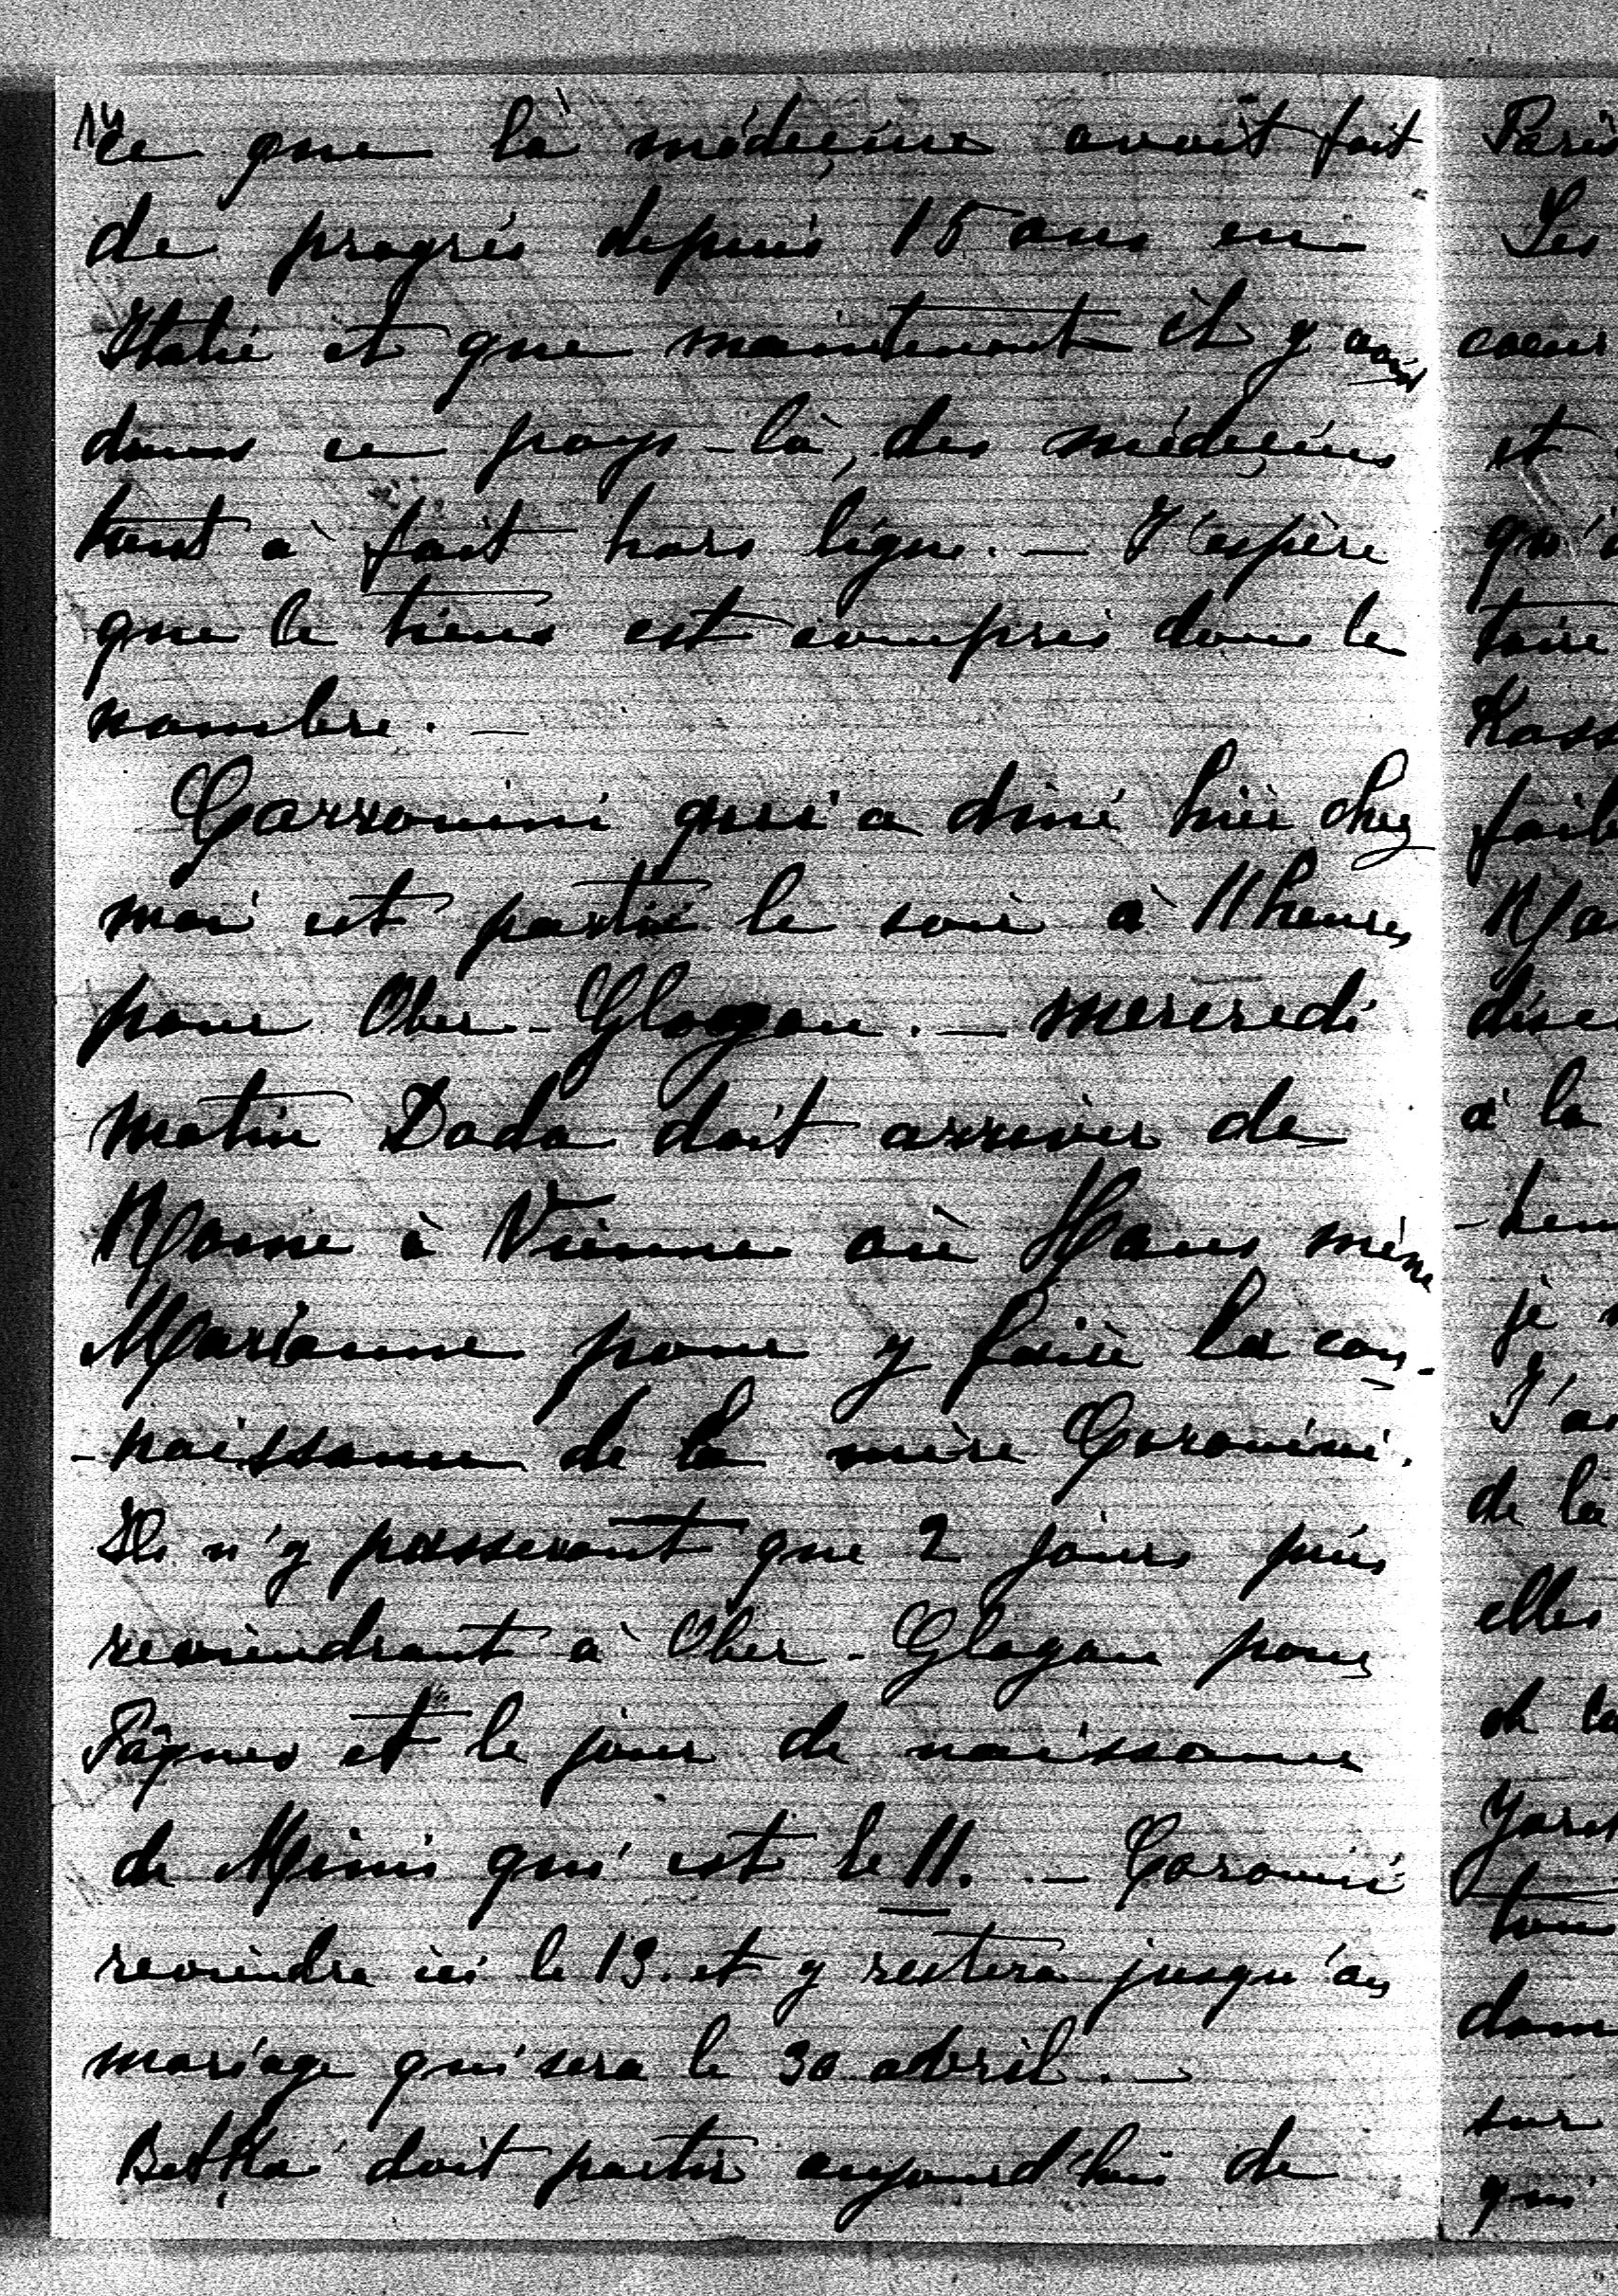 14
ce que la médecine avait fait
de progrès depuis 15 ans en
Italie et que maintenant il y avait
dans ce pays-là, des médecins
tout à fait hors ligne. — J'espère
que le tiens est compris dans le
nombre. —
Garronini qui a diné hier chez
moi est partie le soir à 11 heures
pour Ober-Glogau. — mercredi
matin Dada doit arriver de
Rome à Vienne où Hans mène
Marianne pour y faire la con-
-naissance de la mère Goronini.
Ils n'y passeront que 2 jours puis
reviendront à Ober-Glogau pour
Pâques et le jour de naissance
de Mimi qui est le 11. — Coronini
reviendra ici le 13. et y restera jusqu'au
mariage qui sera le 30 abril. —
Betka doit partir aujourd'hui de
Paris
Les
coeur
et
qu'
toire
Kass
faib
Ma
dise
à la
je
J'ai
de la
elles
de la
tou
dam
sur
qui